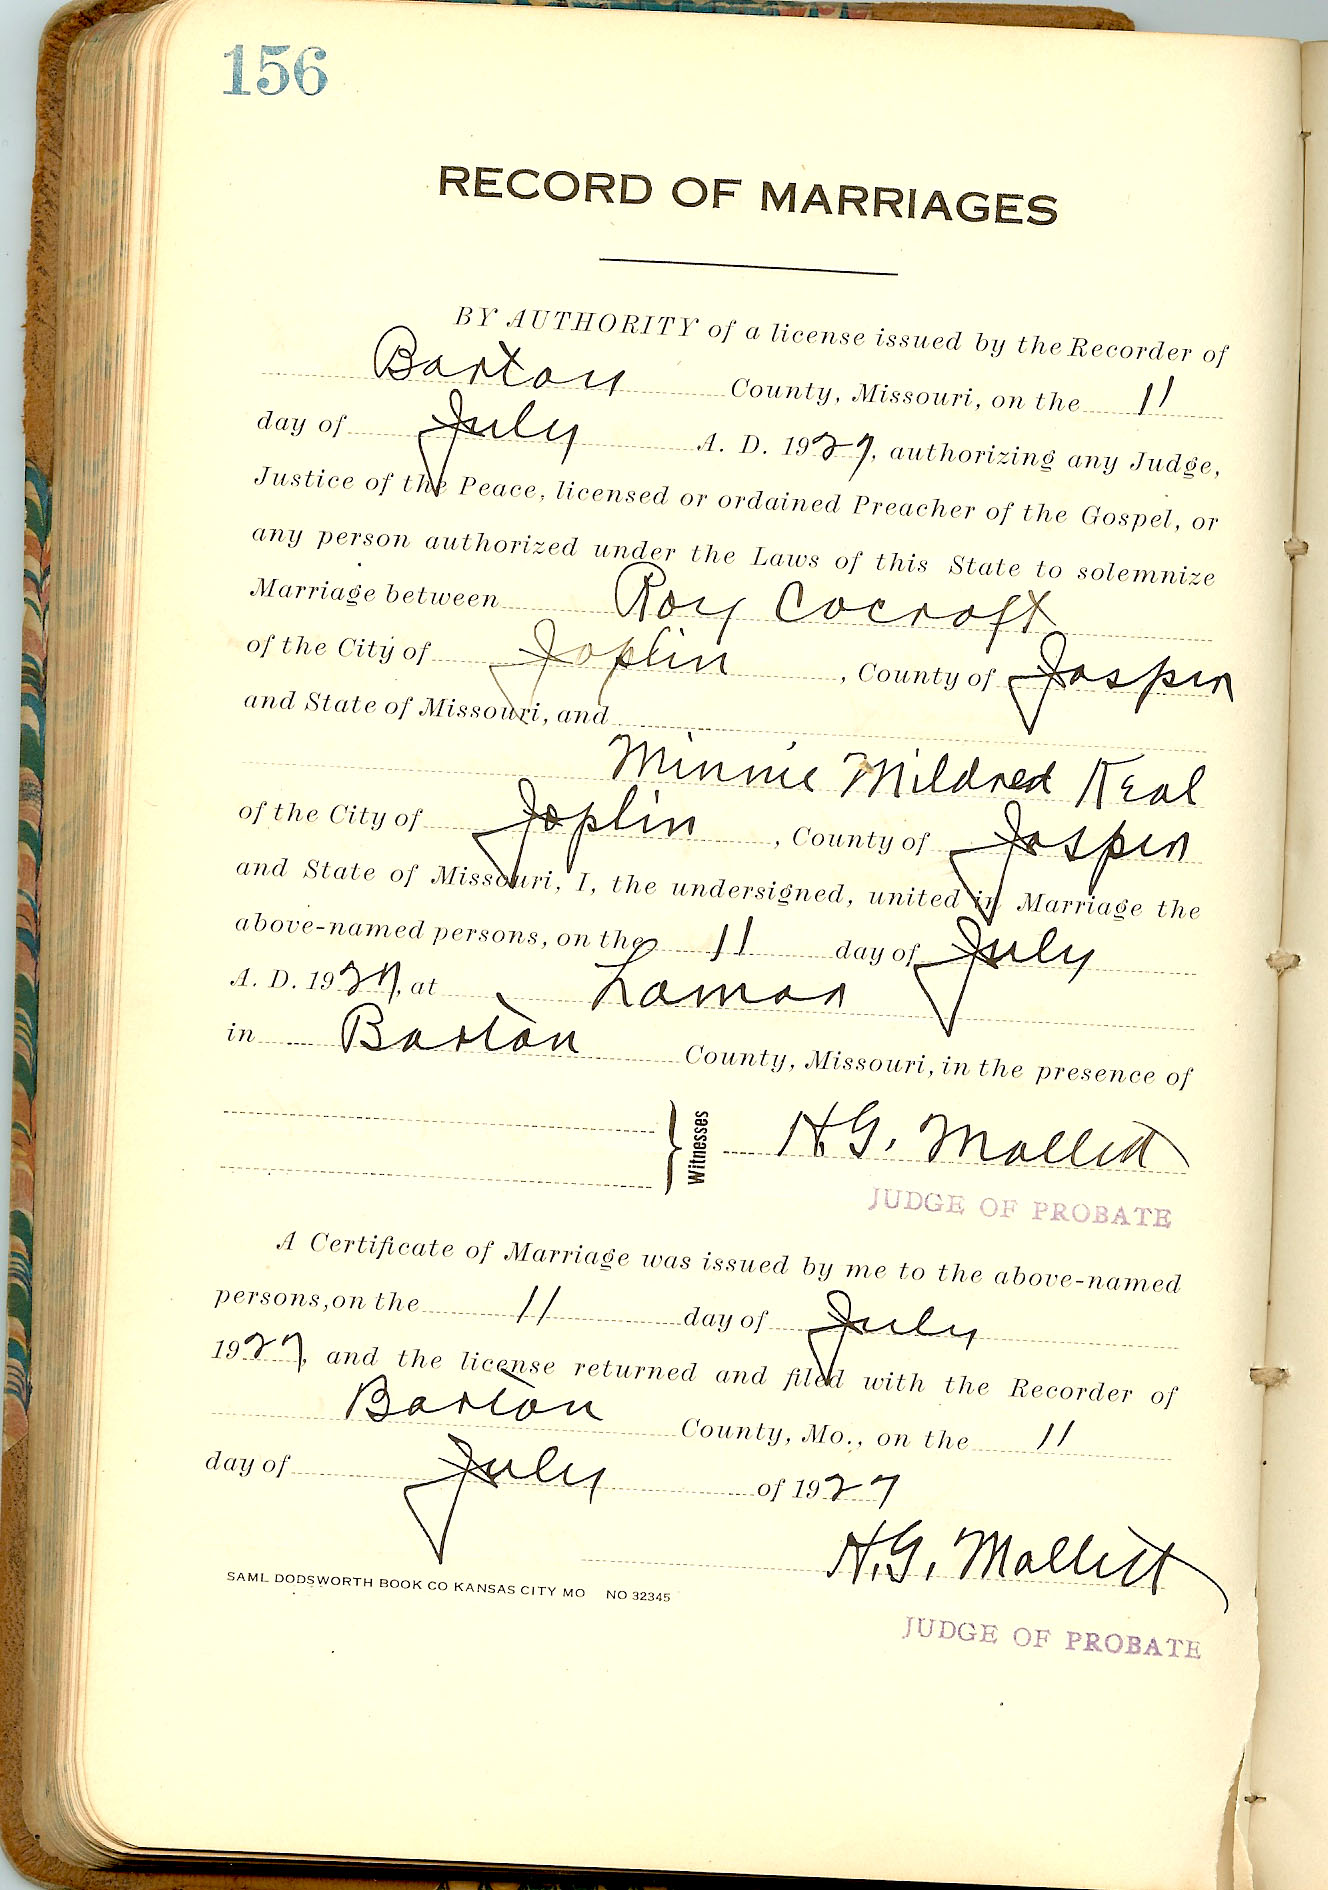 156
RECORD OF MARRIAGES
BY AUTHORITY of a license issued by the Recorder of
Barton County, Missouri, on the 11
day of July A. D. 1927, authorizing any Judge,
Justice of the Peace, licensed or ordained Preacher of the Gospel, or
any person authorized under the Laws of this State to solemnize
Marriage between Roy Cocroft
of the City of Joplin, County of Jasper
and State of Missouri, and
Minnie Mildred Keal
of the City of Joplin, County of Jasper
and State of Missouri, I, the undersigned, united in Marriage the
above-named persons, on the 11 day of July
A. D. 1927, at Lamar
in Barton County, Missouri, in the presence of
Witnesses H.G. Mallett
JUDGE OF PROBATE
A Certificate of Marriage was issued by me to the above-named
persons, on the 11 day of July
1927, and the license returned and filed with the Recorder of
Barton County, Mo., on the 11
day of July of 1927
H.G. Mallett
SAML DODSWORTH BOOK CO KANSAS CITY MO NO 32345
JUDGE OF PROBATE